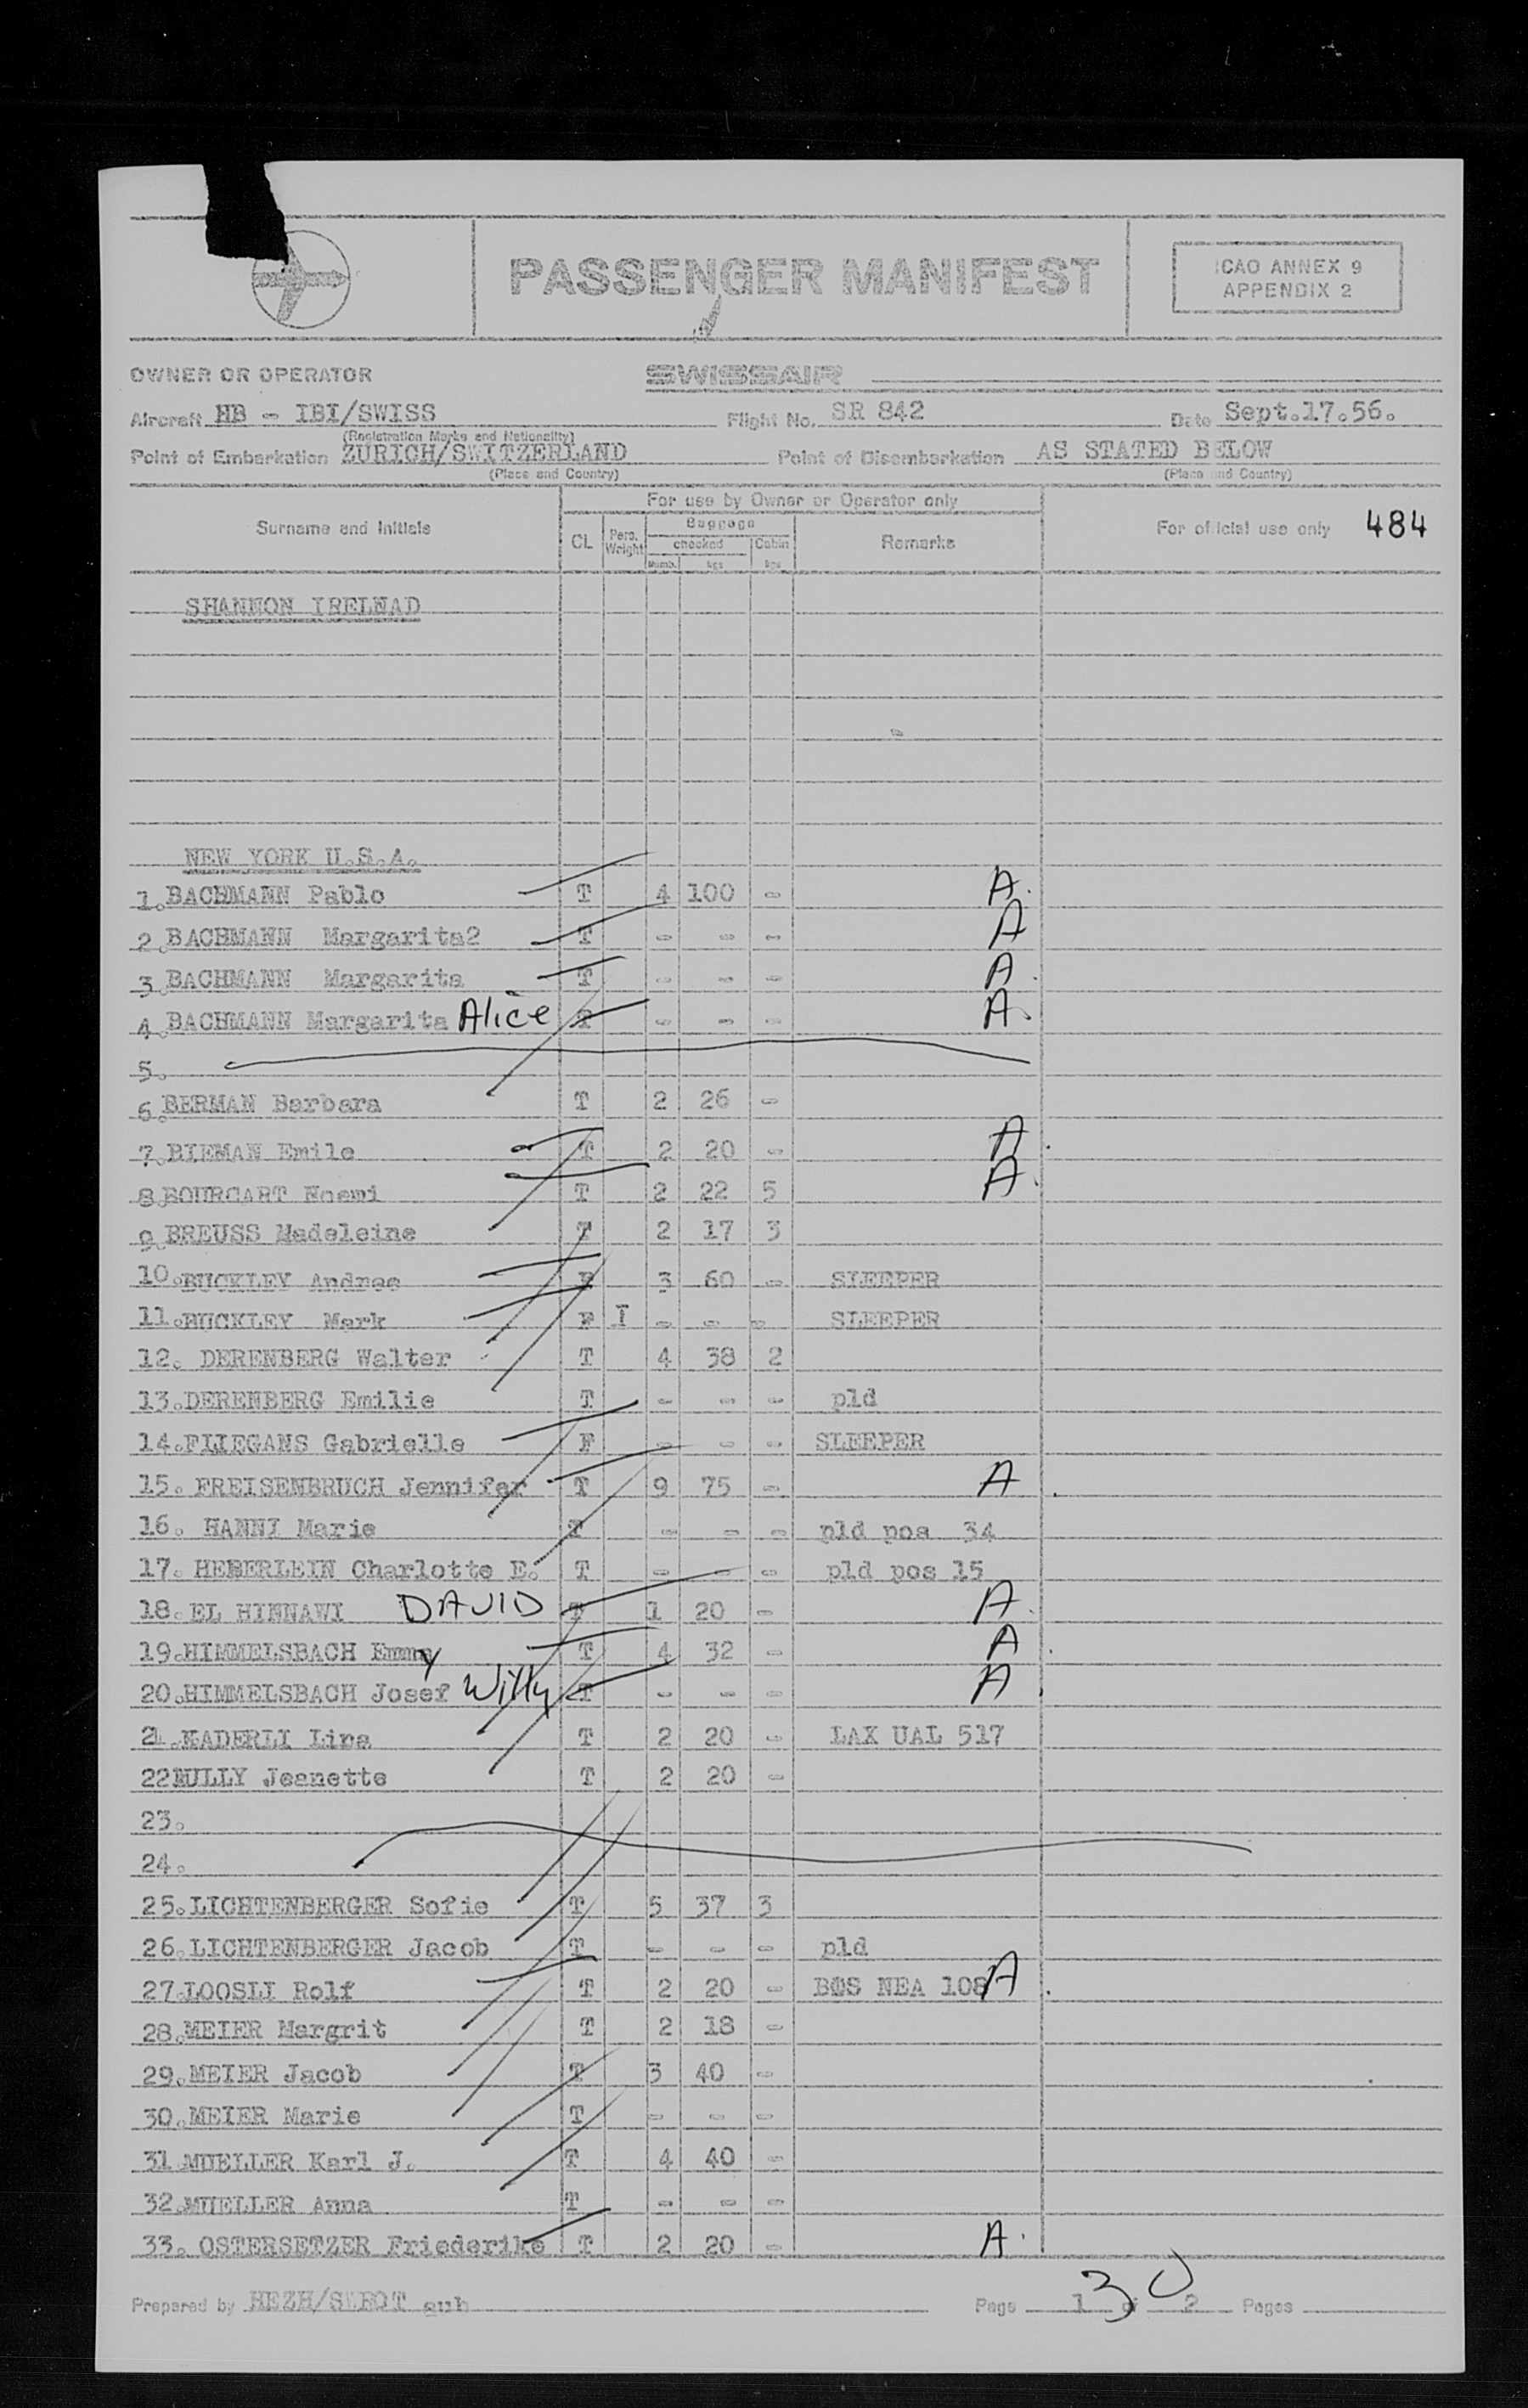 PASSENGER MANIFEST
ICAO ANNEX 9
APPENDIX 2
OWNER OR OPERATOR SWISSAIR
Aircraft HB - IBI/SWISS Flight No. SR 842 Date Sept.17.56.
(Registration Marks and Nationality)
Point of Embarkation ZURICH/SWITZERLAND Point of Disembarkation AS STATED BELOW
(Place and Country) (Place and Country)
For use by Owner or Operator only
Surname and Initials CL Pers. Weight Baggage checked Numb. kgs Cabin kgs Remarks For official use only 484
SHANNON IRELNAD
NEW YORK U.S.A.
1.BACHMANN Pablo T 4 100 - A.
2.BACHMANN Margarita2 T - - - A
3.BACHMANN Margarita T - - - A.
4.BACHMANN Margarita Alice T - - - A.
5.
6.BERMAN Barbara T 2 26 -
7.BIEMAN Emile T 2 20 - A.
8.BOURCART Noemi T 2 22 5 A.
9.BREUSS Madeleine T 2 17 3
10.BUCKLEY Andree F 3 60 - SLEEPER
11.BUCKLEY Mark F I - - - SLEEPER
12. DERENBERG Walter T 4 38 2
13.DERENBERG Emilie T - - - pld
14.FLIEGANS Gabrielle F - - - SLEEPER
15. FREISENBRUCH Jennifer T 9 75 - A.
16. HANNI Marie T - - - pld pos 34
17. HEBERLEIN Charlotte E. T - - - pld pos 15
18.EL HINNAWI DAVID T 1 20 - A.
19.HIMMELSBACH Emmy T 4 32 - A.
20.HIMMELSBACH Josef Willy T - - - A.
21.KADERLI Lina T 2 20 - LAX UAL 517
22 Jeanette T 2 20 -
23.
24.
25.LICHTENBERGER Sofie T 5 37 3
26.LICHTENBERGER Jacob T - - - pld
27.LOOSLI Rolf T 2 20 - BOS NEA 108 A.
28.MEIER Margrit T 2 18 -
29.MEIER Jacob T 3 40 -
30.MEIER Marie T - - -
31 MUELLER Karl J. T 4 40 -
32.MUELLER Anna T - - -
33. OSTERSETZER Friederike T 2 20 - A.
Prepared by gub Page 1 of 2 Pages
30